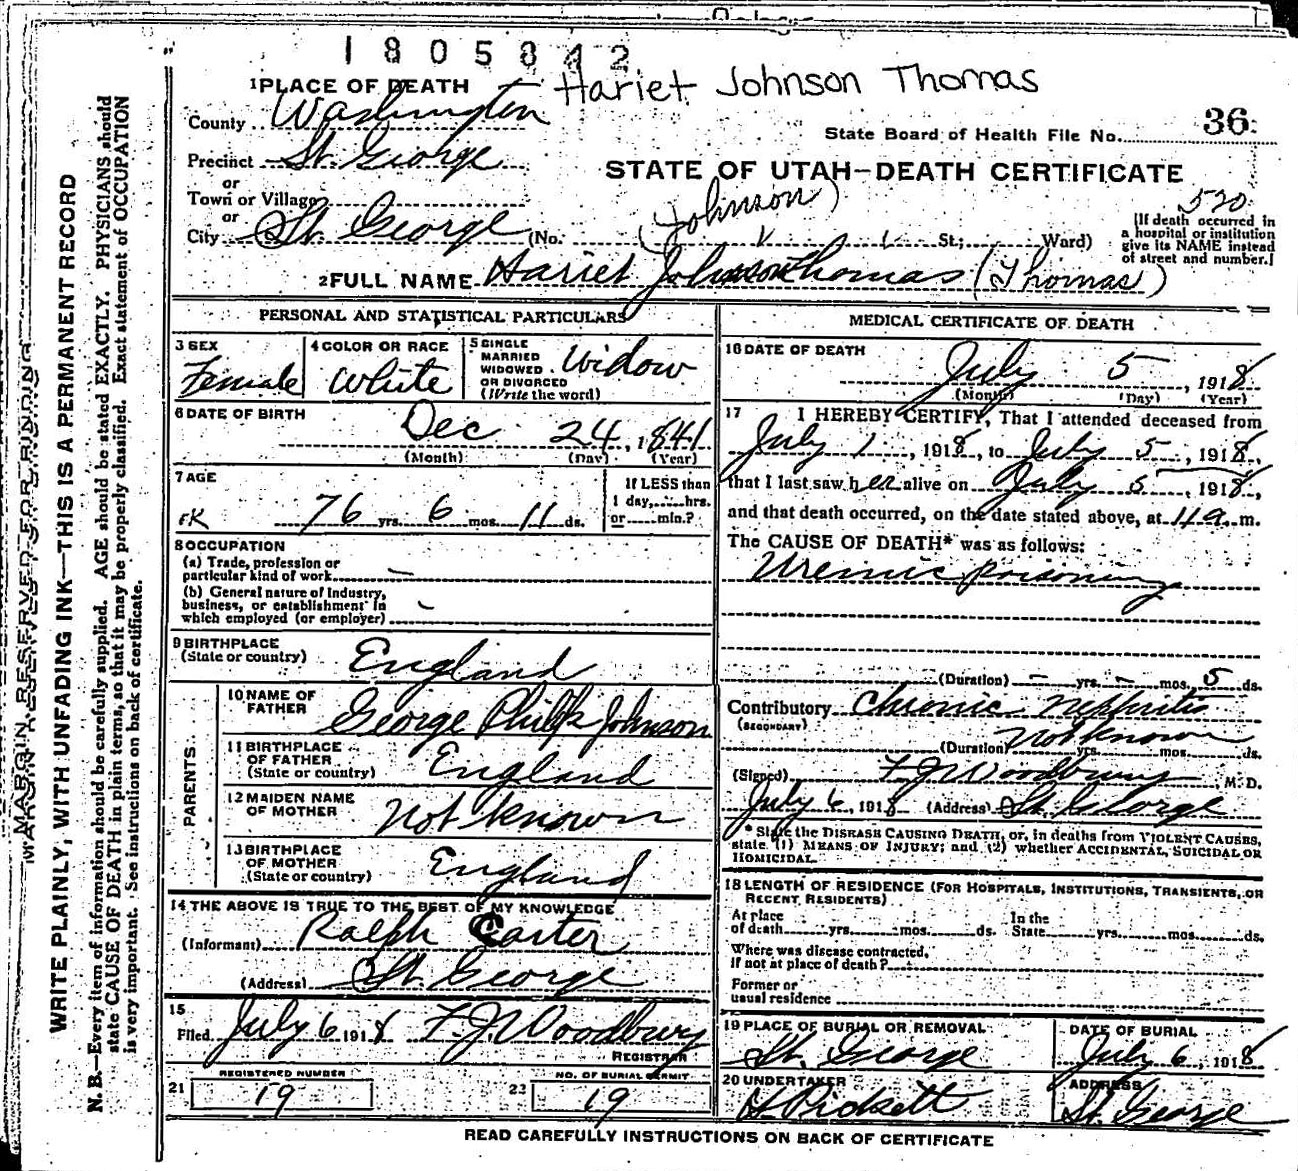 1805842
Hariet Johnson Thomas
1 PLACE OF DEATH
County Washington
State Board of Health File No. 36
Precinct St. George
STATE OF UTAH—DEATH CERTIFICATE
or
Town or Village
or
City St. George (No. St.; Ward)
(Johnson)
520
[If death occurred in
a hospital or institution
give its NAME instead
of street and number.]
2 FULL NAME Hariet Johnson Thomas (Thomas)
PERSONAL AND STATISTICAL PARTICULARS
3 SEX
Female
4 COLOR OR RACE
White
5 SINGLE
MARRIED
WIDOWED
OR DIVORCED
(Write the word)
Widow
6 DATE OF BIRTH
Dec 24, 1841
(Month) (Day) (Year)
7 AGE
76 yrs. 6 mos. 11 ds.
If LESS than
1 day, hrs.
or min.?
8 OCCUPATION
(a) Trade, profession or
particular kind of work —
(b) General nature of Industry,
business, or establishment in
which employed (or employer)
9 BIRTHPLACE
(State or country) England
PARENTS
10 NAME OF
FATHER George Johnson
11 BIRTHPLACE
OF FATHER
(State or country) England
12 MAIDEN NAME
OF MOTHER Not Known
13 BIRTHPLACE
OF MOTHER
(State or country) England
14 THE ABOVE IS TRUE TO THE BEST OF MY KNOWLEDGE
(Informant) Ralph Carter
(Address) St. George
15
Filed July 6 1918 F. J. Woodbury
REGISTRAR
21 REGISTERED NUMBER
19
22 NO. OF BURIAL PERMIT
19
MEDICAL CERTIFICATE OF DEATH
16 DATE OF DEATH
July 5, 1918
(Month) (Day) (Year)
17 I HEREBY CERTIFY, That I attended deceased from
July 1, 1918, to July 5, 1918,
that I last saw her alive on July 5, 1918,
and that death occurred, on the date stated above, at 11 a. m.
The CAUSE OF DEATH* was as follows:
Uremic poisoning
(Duration) — yrs. — mos. 5 ds.
Contributory Chronic Nephritis
(SECONDARY)
(Duration) Not known yrs. mos. ds.
(Signed) F. J. Woodbury, M. D.
July 6, 1918 (Address) St. George
* State the DISEASE CAUSING DEATH, or, in deaths from VIOLENT CAUSES,
state (1) MEANS OF INJURY; and (2) whether ACCIDENTAL, SUICIDAL OR
HOMICIDAL.
18 LENGTH OF RESIDENCE (FOR HOSPITALS, INSTITUTIONS, TRANSIENTS, OR
RECENT RESIDENTS)
At place
of death yrs. mos. ds.
In the
State yrs. mos. ds.
Where was disease contracted,
If not at place of death?
Former or
usual residence
19 PLACE OF BURIAL OR REMOVAL
St. George
DATE OF BURIAL
July 6, 1918
20 UNDERTAKER
H Pickett
ADDRESS
St. George
READ CAREFULLY INSTRUCTIONS ON BACK OF CERTIFICATE
MARGIN RESERVED FOR BINDING
WRITE PLAINLY, WITH UNFADING INK—THIS IS A PERMANENT RECORD
N. B.—Every item of information should be carefully supplied. AGE should be stated EXACTLY. PHYSICIANS should
state CAUSE OF DEATH in plain terms, so that it may be properly classified. Exact statement of OCCUPATION
is very important. See instructions on back of certificate.